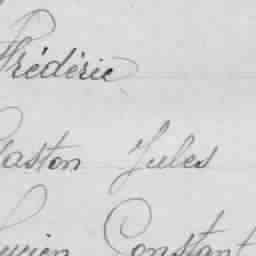 Frédéric
Gaston Jules
Lucien Constant